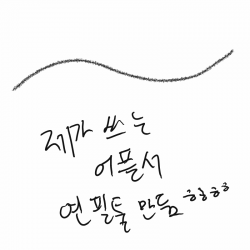 제가 쓰는
어플서
연필툴 만듦 ㅎㅎㅎㅎ